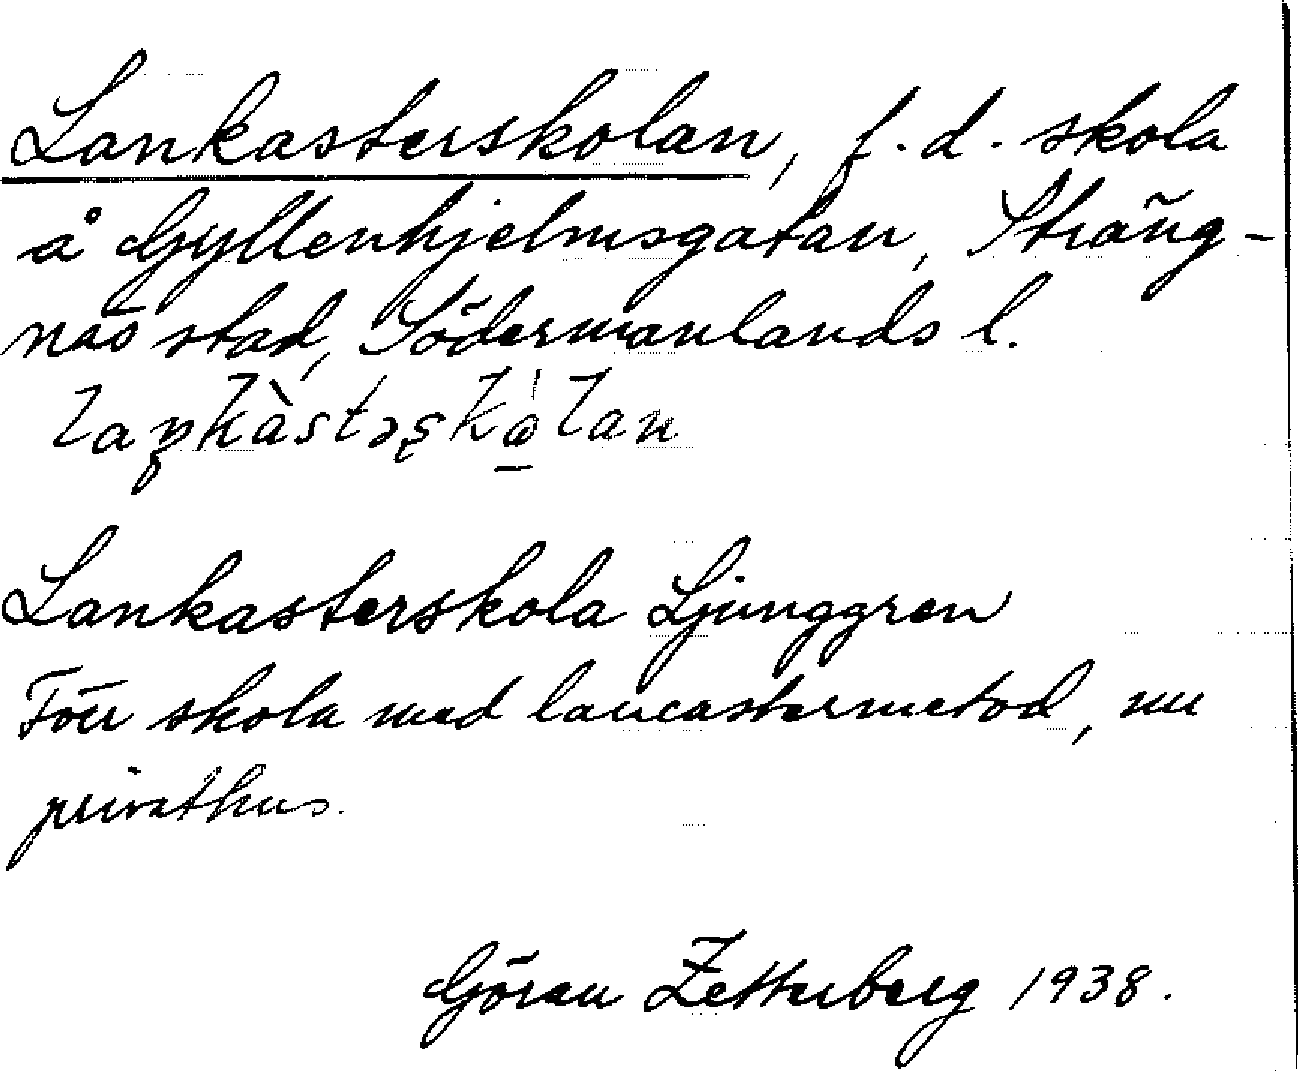 Lankasterskolan, f.d. skola
å Gyllenhjelmsgatan, Sträng-
näs stad, Södermanlands l.
Lankasterskola Ljunggren
Förr skola med lancastermetod, nu
privathus.
Göran Zetterberg 1938.